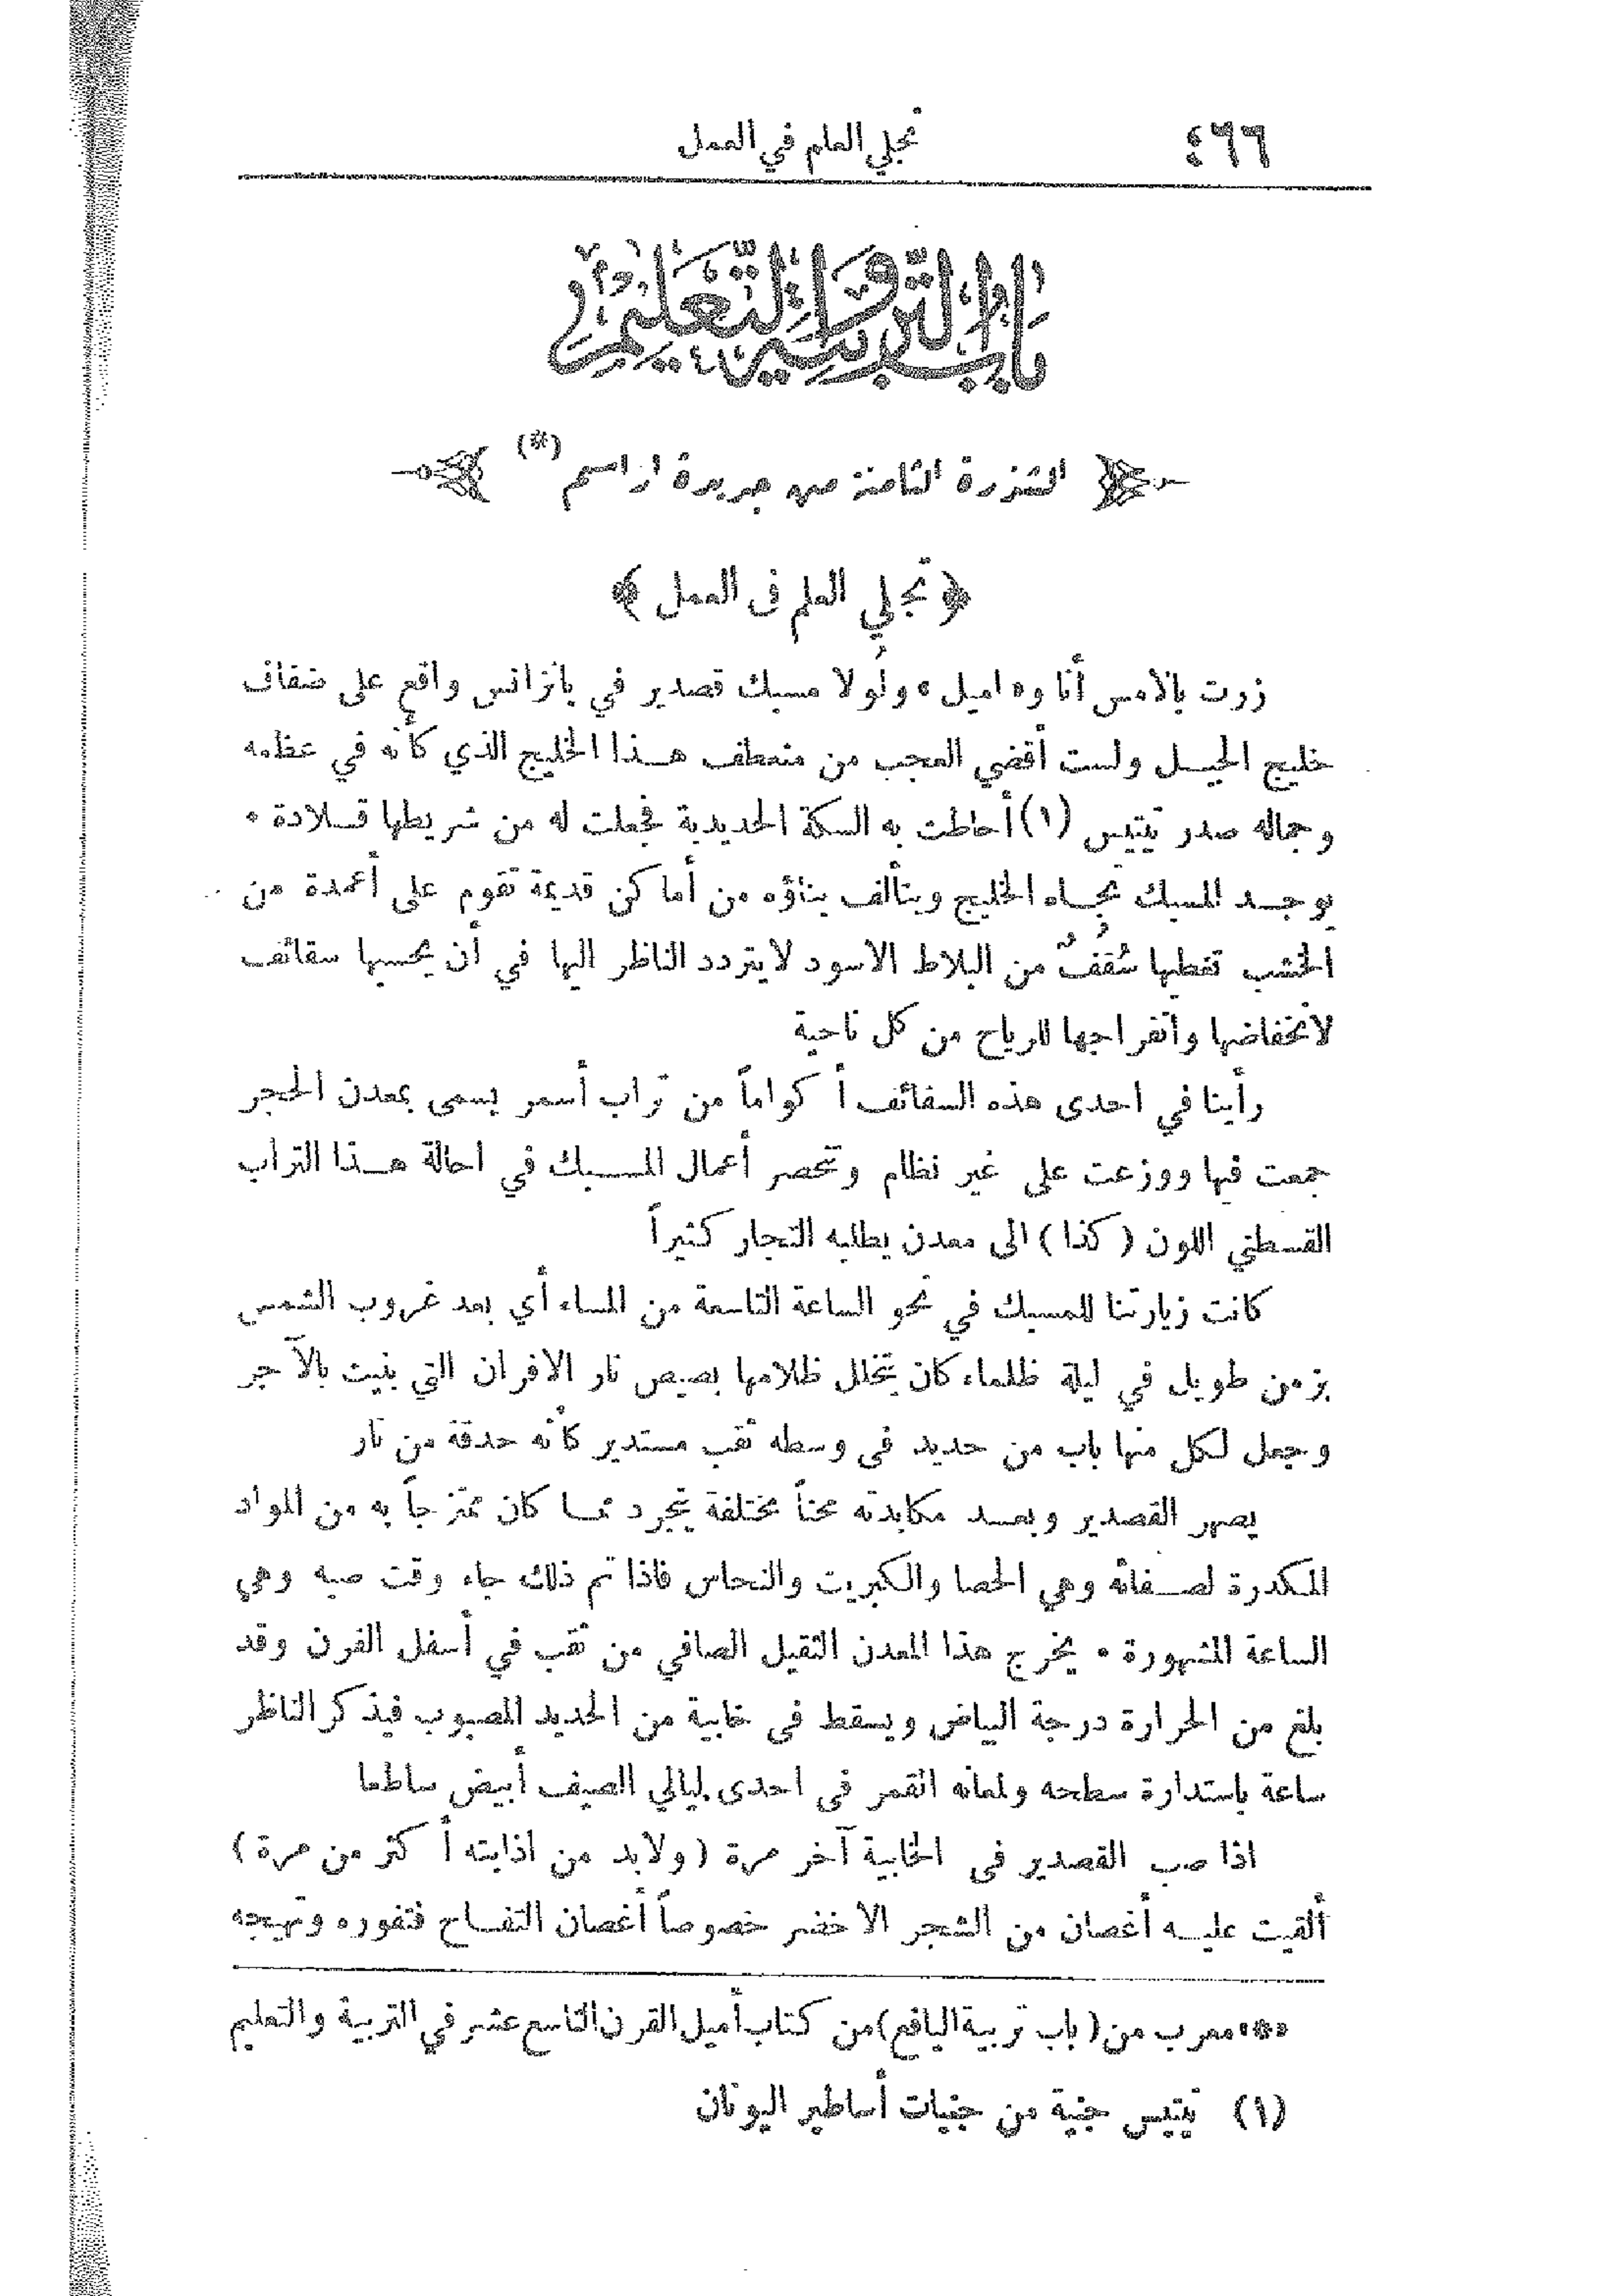 ٤٦٦
تجلي العلم في العمل
باب التربية والتعليم
الشذرة الثامنة من جريدة اراسم (*)
﴿ تجلي العلم فى العمل ﴾
زرت بالامس أنا و« اميل » ولولا مسبك قصدير في بانزانس واقع على ضفاف
خليج الجبـل ولست أقضي العجب من منعطف هـذا الخليج الذي كأنه في عظمه
وجماله صدر تيتيس (١) أحاطت به السكة الحديدية فجعلت له من شريطها قـلادة •
يوجـد المسبك تجـاه الخليج ويتألف بناؤه من أماكن قديمة تقوم على أعمدة من
الخشب تغطيها سُقُفٌ من البلاط الاسود لا يتردد الناظر اليها في أن يحسبها سقائف
لانخفاضها وانفراجها للرياح من كل ناحية
رأينا في احدى هذه السقائف أكواماً من تراب أسمر يسمى بمعدن الحجر
جمعت فيها ووزعت على غير نظام وتنحصر أعمال المسـبك في احالة هـذا التراب
القسطني اللون ( كذا ) الى معدن يطلبه التجار كثيراً
كانت زيارتنا للمسبك في نحو الساعة التاسعة من المساء أي بعد غروب الشمس
بزمن طويل في ليلة ظلماء كان يتخلل ظلامها بصيص نار الافران التي بنيت بالآجر
وجعل لكل منها باب من حديد فى وسطه ثقب مستدير كأنه حدقة من نار
يصهر القصدير وبعـد مكابدته محناً مختلفة يتجرد عمـا كان ممتزجاً به من المواد
المكدرة لصـفائه وهي الحصا والكبريت والنحاس فاذا تم ذلك جاء وقت صبه وهي
الساعة المشهورة • يخرج هذا المعدن الثقيل الصافي من ثقب في أسفل الفرن وقد
بلغ من الحرارة درجة البياض ويسقط فى خابية من الحديد المصبوب فيذكر الناظر
ساعة باستدارة سطحه ولمعانه القمر فى احدى ليالي الصيف أبيض ساطعا
اذا صب القصدير فى الخابية آخر مرة ( ولابد من اذابته أكثر من مرة )
ألقيت عليـه أغصان من الشجر الاخضر خصوصاً أغصان التفـاح فتفوره وتهيجه
«*» معرب من ( باب تربية اليافع ) من كتاب أميل القرن التاسع عشر في التربية والتعليم
(١) تيتيس جنية من جنيات أساطير اليونان